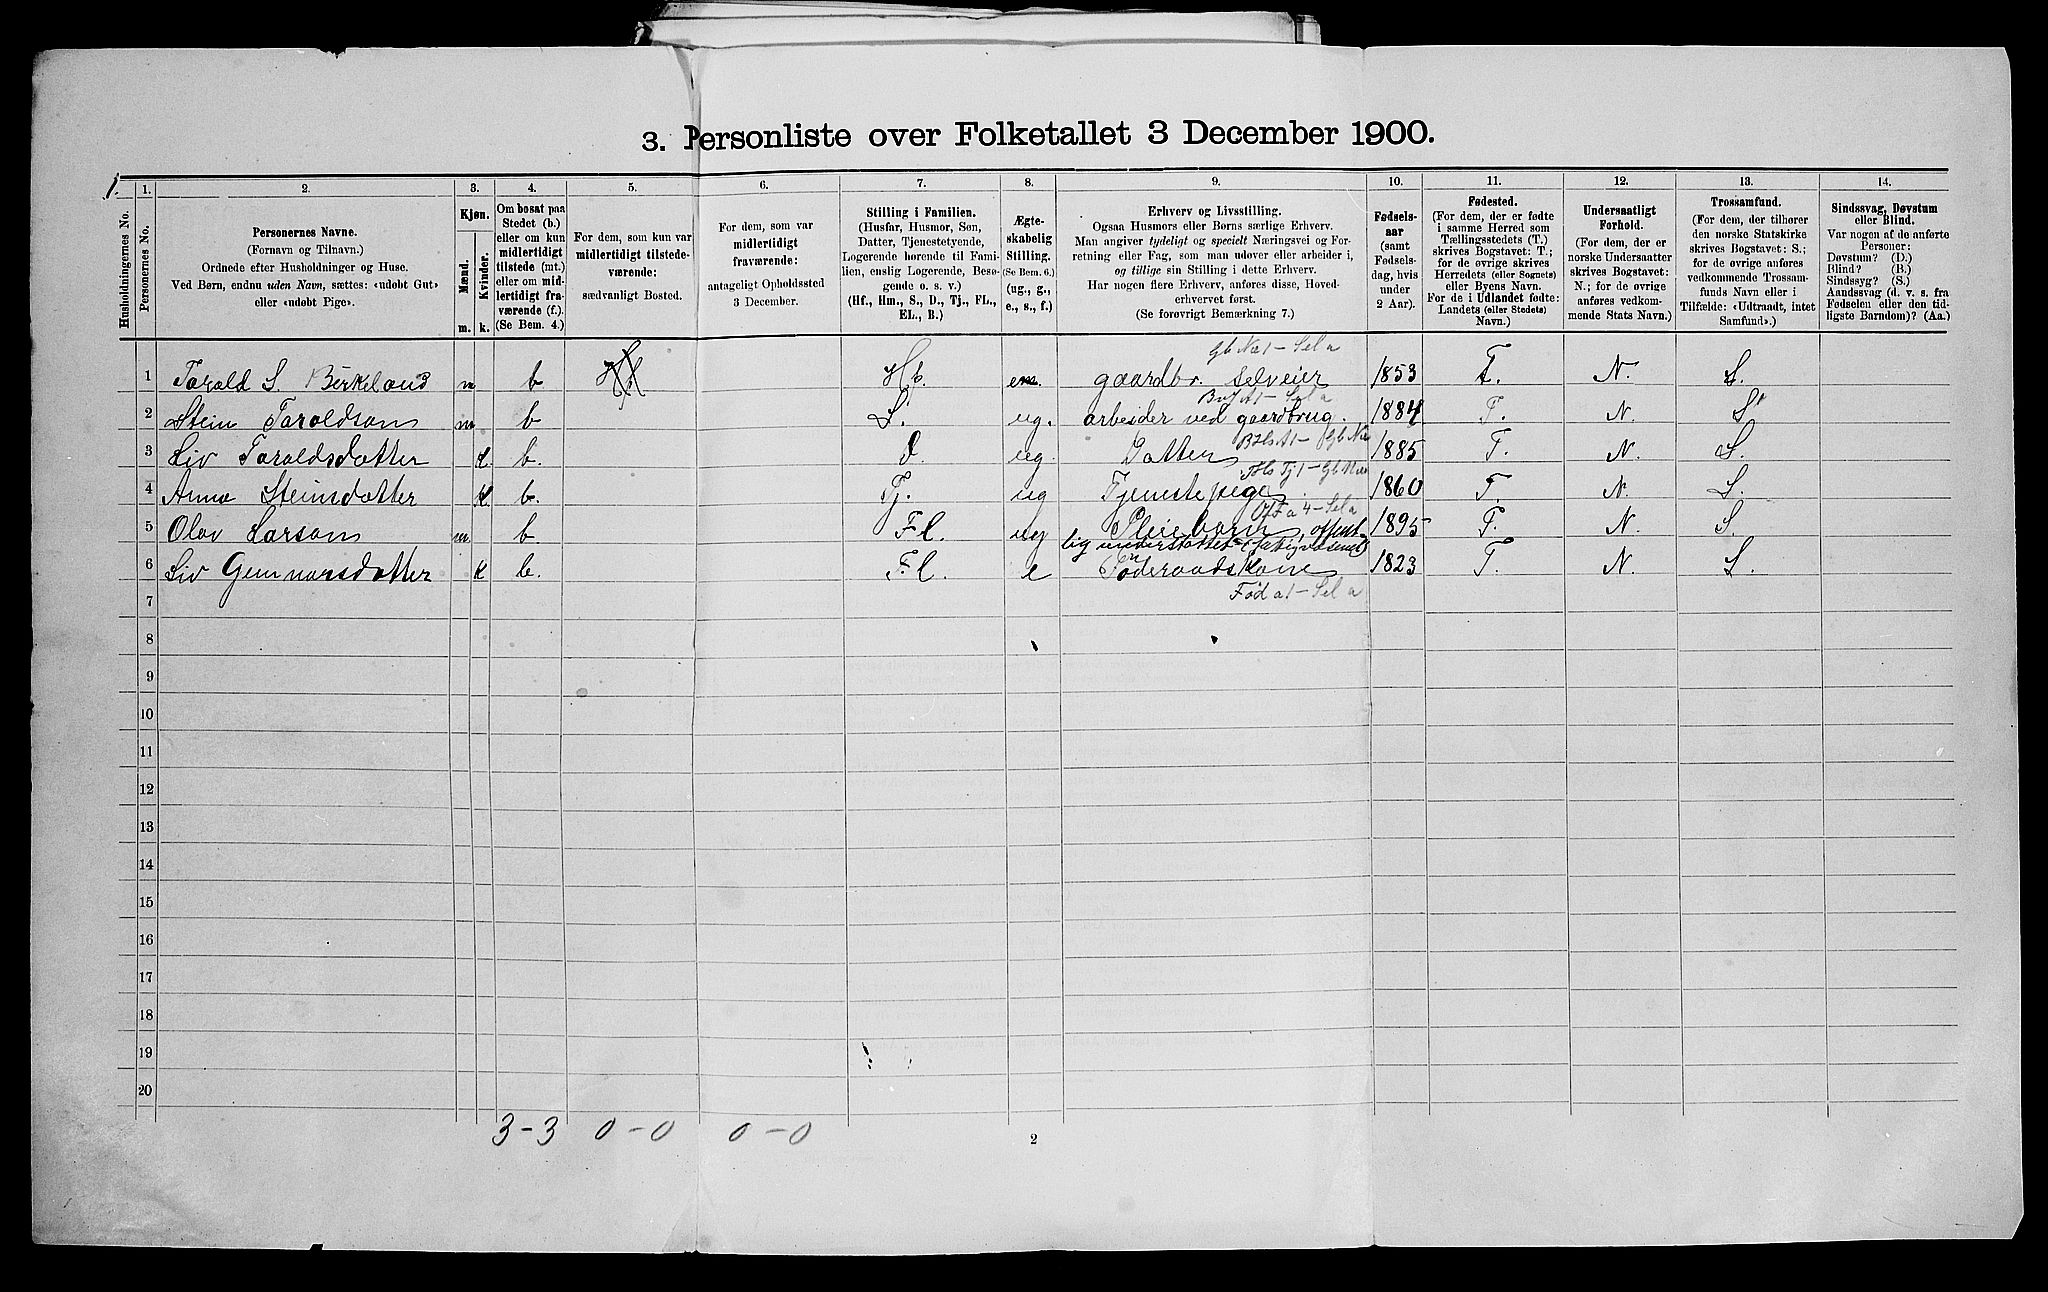 3. Personliste over Folketallet 3 December 1900.
1.
1. 2. 3. 4. 5. 6. 7. 8. 9. 10. 11. 12. 13. 14.
Husholdningernes No.
Personernes No.
Personernes Navne.
(Fornavn og Tilnavn.)
Ordnede efter Husholdninger og Huse.
Ved Børn, endnu uden Navn, sættes: «udøbt Gut»
eller «udøbt Pige».
Kjøn.
Mænd.
Kvinder.
m. k.
Om bosat paa
Stedet (b.)
eller om kun
midlertidigt
tilstede (mt.)
eller om mid-
lertidigt fra-
værende (f.).
(Se Bem. 4.)
For dem, som kun var
midlertidigt tilstede-
værende:
sædvanligt Bosted.
For dem, som var
midlertidigt
fraværende:
antageligt Opholdssted
3 December.
Stilling i Familien.
(Husfar, Husmor, Søn,
Datter, Tjenestetyende,
Logerende hørende til Fami-
lien, enslig Logerende, Besø-
gende o. s. v.)
(Hf., Hm., S., D., Tj., FL.,
EL., B.)
Ægte-
skabelig
Stilling.
(Se Bem. 6.)
(ug., g.,
e., s., f.)
Erhverv og Livsstilling.
Ogsaa Husmors eller Børns særlige Erhverv.
Man angiver tydeligt og specielt Næringsvei og For-
retning eller Fag, som man udøver eller arbeider i,
og tillige sin Stilling i dette Erhverv.
Har nogen flere Erhverv, anføres disse, Hoved-
erhvervet først.
(Se forøvrigt Bemærkning 7.)
Fødsels-
aar
(samt
Fødsels-
dag, hvis
under
2 Aar).
Fødested.
(For dem, der er fødte
i samme Herred som
Tællingsstedets (T.)
skrives Bogstavet: T.;
for de øvrige skrives
Herredets (eller Sognets)
eller Byens Navn.
For de i Udlandet fødte:
Landets (eller Stedets)
Navn.)
Undersaatligt
Forhold.
(For dem, der er
norske Undersaatter
skrives Bogstavet:
N.; for de øvrige
anføres vedkom-
mende Stats Navn.)
Trossamfund.
(For dem, der tilhører
den norske Statskirke
skrives Bogstavet: S.;
for de øvrige anføres
vedkommende Trossam-
funds Navn eller i
Tilfælde: «Udtraadt, intet
Samfund».)
Sindssvag, Døvstum
eller Blind.
Var nogen af de anførte
Personer:
Døvstum? (D.)
Blind? (B.)
Sindssyg? (S.)
Aandssvag (d. v. s. fra
Fødselen eller den tid-
ligste Barndom)? (Aa.)
Gb Na 1 – Sel a
1 Tarald S. Birkeland m b Hf. em. gaardbr. selveier 1853 T. N. S.
Sel a
2 Stein Taraldson m b S. ug. arbeider ved gaardbrug. 1884 T. N. S.
3 Liv Taraldsdatter k. b. D. ug. Datter 1885 T. N. S.
4 Anne Steinsdatter k b. Tj. ug Tjenestepige 1860 T. N. S.
Off a 4 – Sel a
5 Olav Larson m. b F.l. ug Pleiebarn, offent- 1895 T. N. S.
lig understøttet (fattigvæsenet)
6 Liv Gunnarsdatter k b. F.l. e Føderaadskone 1823 T. N. S.
7 Fød a 1 – Sel a
8
9
10
11
12
13
14
15
16
17
18
19
20
3 – 3 0 – 0 0 – 0
2